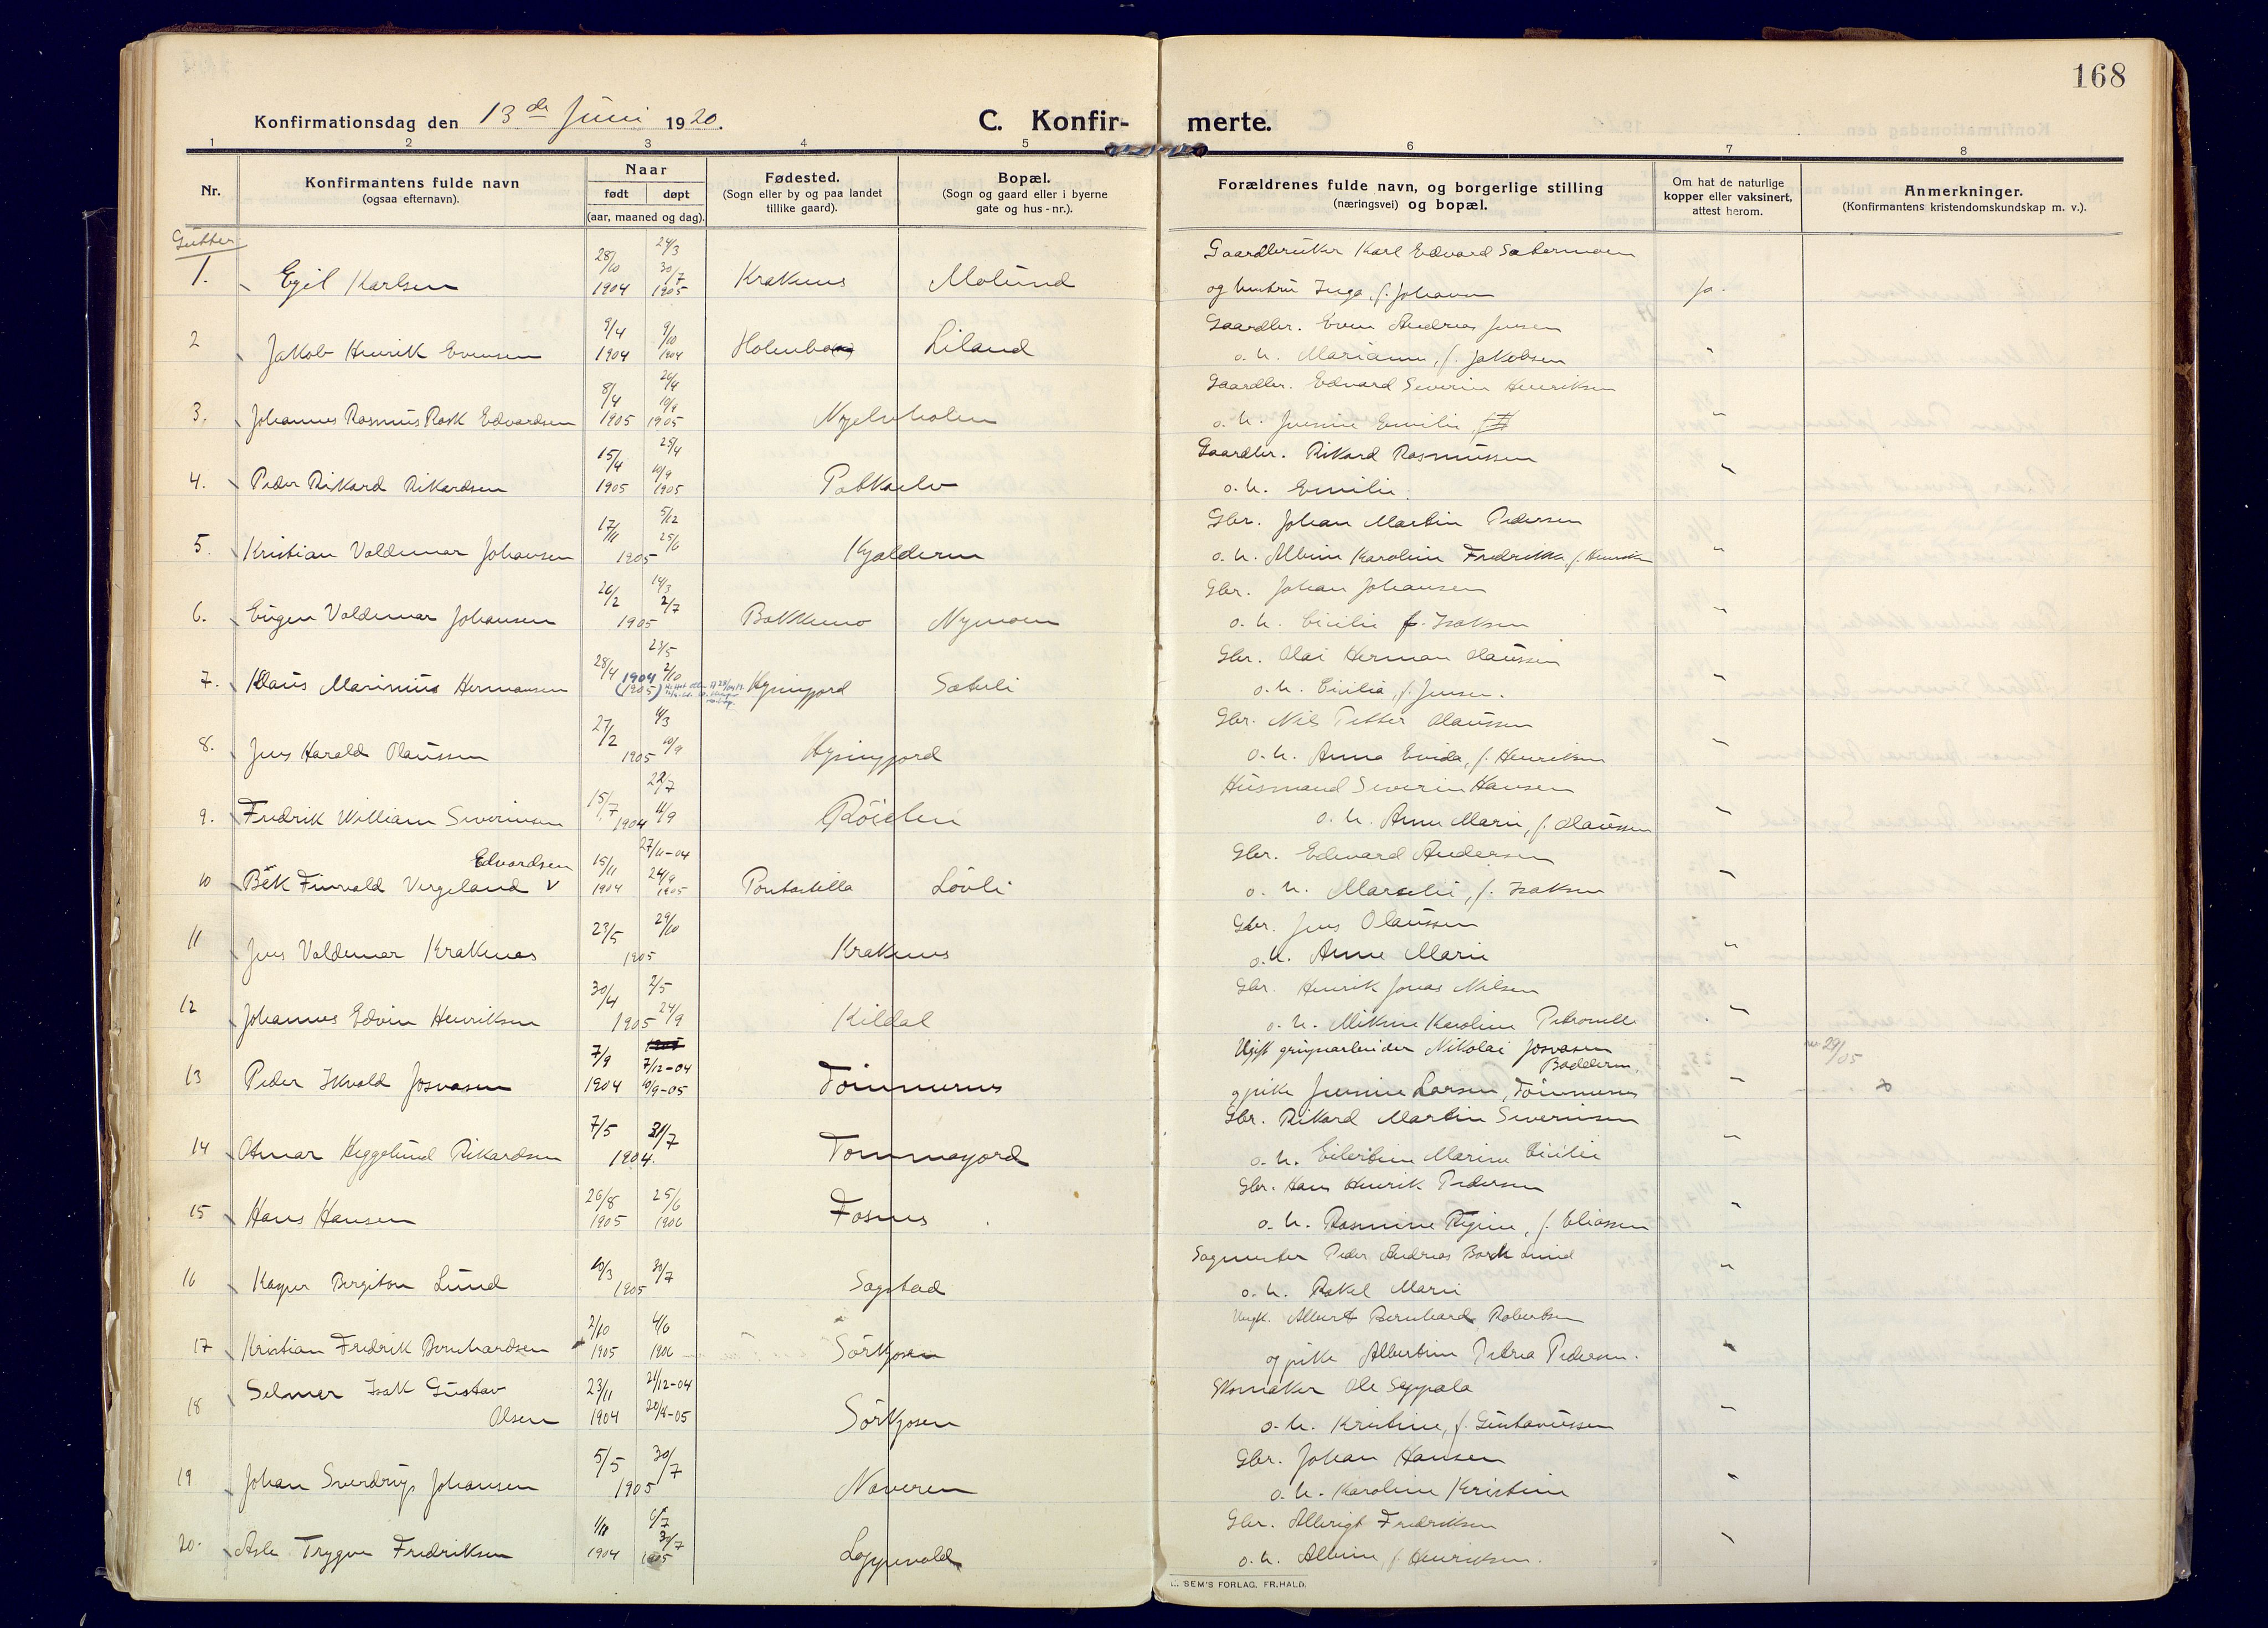 168
Konfirmationsdag den 13de Juni 1920. C. Konfirmerte.
1 2 3 4 5 6 7 8
Nr.
Konfirmantens fulde navn
(ogsaa efternavn).
Naar
født døpt
(aar, maaned og dag).
Fødested.
(Sogn eller by og paa landet
tillike gaard).
Bopæl.
(Sogn og gaard eller i byerne
gate og hus-nr.).
Forældrenes fulde navn, og borgerlige stilling
(næringsvei) og bopæl.
Om hat de naturlige
kopper eller vaksinert,
attest herom.
Anmerkninger.
(Konfirmantens kristendomskundskap m. v.).
Gutter
1. Egil Karlsen 28/10 1904 24/3 30/7 1905 Krakenes Molund
Gaardbruker Karl Edvard Sætermoen
og hustru Inga, f. Johansen ja.
2 Jakob Henrik Evensen 9/4 1904 9/10 1904 Holenbo Liland
Gaardbr. Even Andreas Jensen
o. h. Marianne, f. Jakobsen "
3. Johannes Rasmus Rask Edvardsen 8/4 1905 26/4 10/9 1905 Njelvholen
Gaardbr. Edvard Severin Henriksen
o. h. Jensine Emilie "
4. Peder Rikard Rikardsen 15/4 1905 25/4 10/9 1905
Gaardbr. Rikard Rasmussen
o. h. Emilie "
5. Kristian Valdemar Johansen 17/11 5/12 25/6 1905 Kjælderen
Gbr. Johan Martin Pedersen
o. h. Albine Karoline Fredrikka, f. Henriksen "
6. Eugen Valdemar Johansen 26/2 14/3 2/7 1905 Bakkemo Nymoen
Gbr. Johan Johansen
o. h. Cicilie f. Isaksen "
7. Klaus Marinius Hermansen 28/4 1904 (1905) 23/5 2/10 Kjøsingfjord Sæterli
Gbr. Olai Herman Olaussen
o. h. Cicilia, f. Jensen. "
8. Jens Harald Olaussen 27/2 4/3 10/9 1905
Gbr. Nils Petter Olaussen
o. h. Anna Enida, f. Henriksen "
9. Fredrik William Severinsen 15/7 1904 22/7 11/9 Röielen
Husmand Severin Hansen
o. h. Anne Marie, f. Olaussen "
Edvardsen
10 Bek Finvald Vergeland V 15/11 1904 27/11-04 24/9 1905 Løvli
Gbr. Edevard Andersen
o. h. Marselie, f. Isaksen "
11 Jens Valdemar Krakenes 23/5 29/10 1905 Krakenes
Gbr. Jens Olaussen
o. h. Anne Marie "
12 Johannes Edvin Henriksen 30/4 2/5 24/9 1905 Kildal
Gbr. Henrik Jonas Nilsen
o. h. Mikine Karoline Petronelle "
13 Peder Ikvald Josvasen 7/9 1904 7/12-04 10/9-05 Tömmernes
Ugift grupearbeider Nikolai Josvasen Badderen.
og pike Jensine Larsen, Tömmernes " 29/05
14 Otmar Heggelund Rikardsen 7/5 31/7 1904. Tommafjord
Gbr. Rikard Martin Severinsen
o. h. Eilertine Marine Cicilie "
15 Hans Hansen 26/8 1905 25/6 1906 Fosnes
Gbr. Hans Henrik Pedersen
o. h. Rasmine Regine, f. Eliassen "
16 Kasper Bergiton Lund 10/3 30/7 1905 Sagstad
Sagmester Peder Andreas Bork Lund
o. h. Rakel Marie "
17 Kristian Fredrik Bernhardsen 2/10 1905 4/6 1906 Sörkjosen
Ungk. Albert Bernhard Robertsen
og pike Albertine Petra Pedersen. "
18 Selmer Isak Gustav
Olsen 23/11 1904 21/12-04 20/8-05 Sörkjosen
Skomaker Ole Seppala
o. h. Kristine, f. Gustavussen "
19 Johan Sverdrup Johansen 5/5 30/7 1905 Naveren
Gbr. Johan Hansen
o. h. Karoline Kristine "
20. Asle Trygve Fredriksen 1/11 1904 6/7 30/7 1905 Loppevold
Gbr. Albrigt Fredriksen
o. h. Albine, f. Henriksen. "
SEM'S FORLAG, FR.HALD.